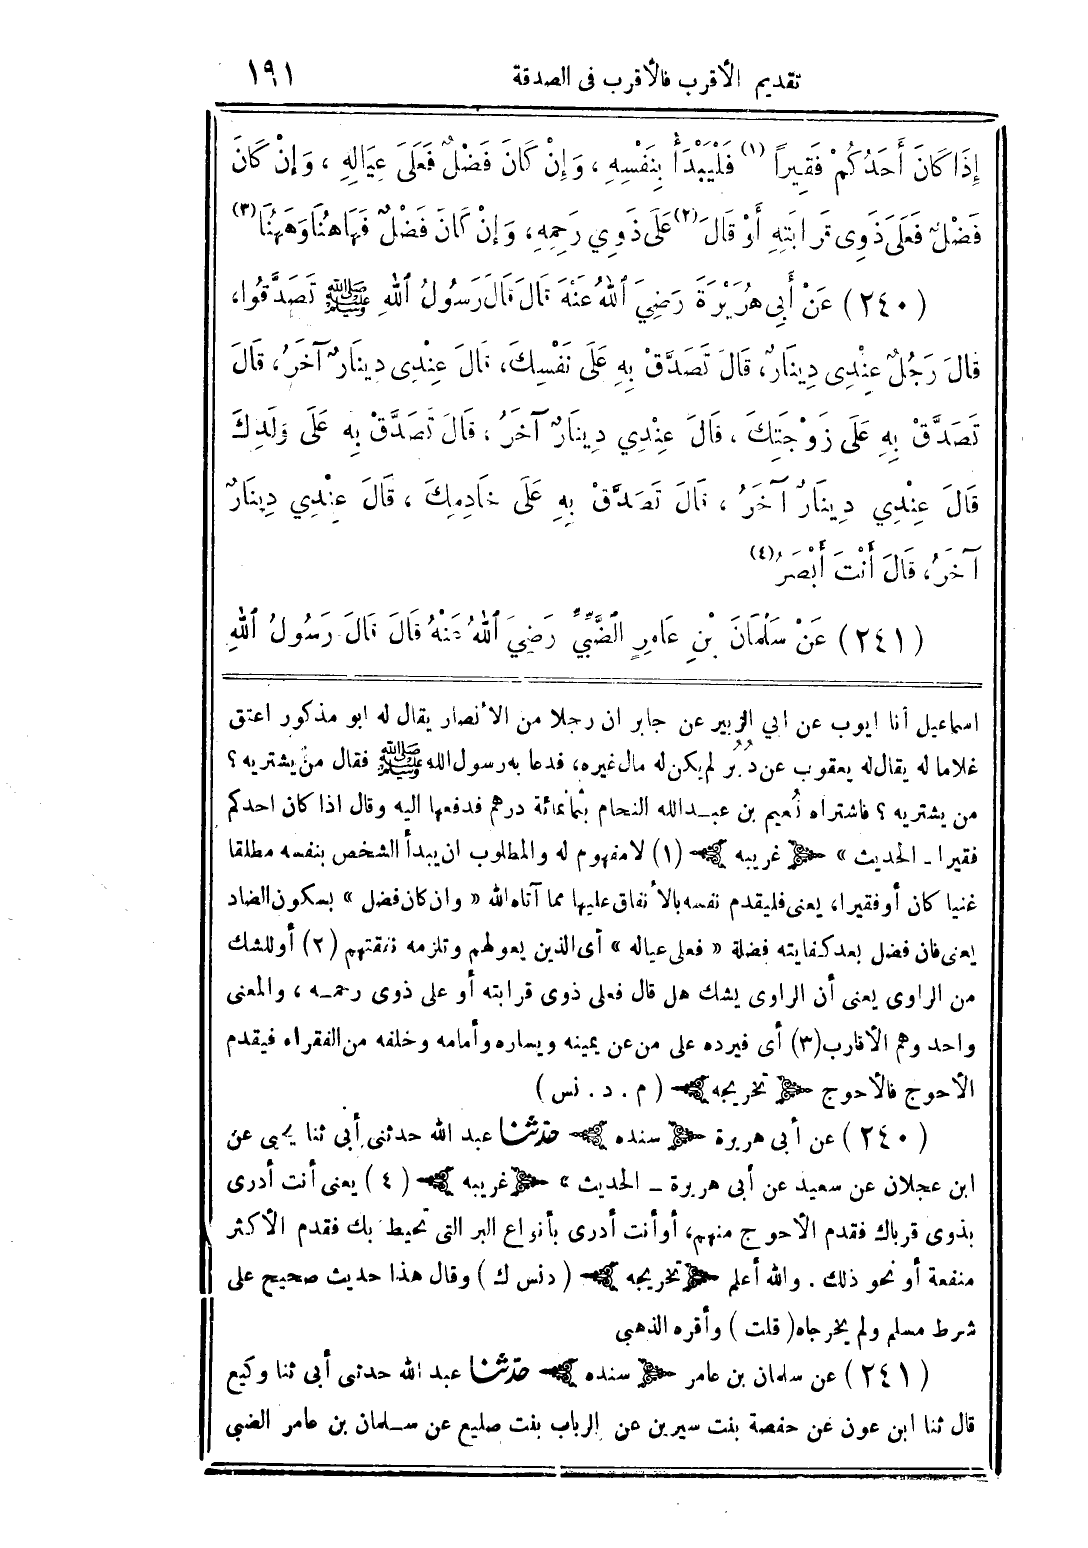 تقديم الأقرب فالأقرب فى الصدقة ١٩١
إِذَا كَانَ أَحَدُكُمْ فَقِيراً (١) فَلْيَبْدَأْ بِنَفْسِهِ ، وَإِنْ كَانَ فَضْلٌ فَعَلَى عِيَالِهِ ، وَإِنْ كَانَ
فَضْلٌ فَعَلَى ذَوِى قَرَابَتِهِ أَوْ قَالَ (٢) عَلَى ذَوِي رَحِمِهِ، وَإِنْ كَانَ فَضْلٌ فَهَاهُنَا وَهَهُنَا (٣)
(٢٤٠) عَنْ أَبِي هُرَيْرَةَ رَضِيَ اللهُ عَنْهُ قَالَ قَالَ رَسُولُ اللهِ ﷺ تَصَدَّقُوا،
قَالَ رَجُلٌ عِنْدِى دِينَارٌ، قَالَ تَصَدَّقْ بِهِ عَلَى نَفْسِكَ، قَالَ عِنْدِى دِينَارٌ آخَرُ، قَالَ
تَصَدَّقْ بِهِ عَلَى زَوْجَتِكَ ، قَالَ عِنْدِي دِينَارٌ آخَرُ ، قَالَ تَصَدَّقْ بِهِ عَلَى وَلَدِكَ
قَالَ عِنْدِي دِينَارٌ آخَرُ ، قَالَ تَصَدَّقْ بِهِ عَلَى خَادِمِكَ ، قَالَ عِنْدِي دِينَارٌ
آخَرُ، قَالَ أَنْتَ أَبْصَرُ (٤)
(٢٤١) عَنْ سَلْمَانَ بْنِ عَامِرٍ الضَّبِّيِّ رَضِيَ اللهُ عَنْهُ قَالَ قَالَ رَسُولُ اللهِ
اسماعيل أنا ايوب عن ابي الزبير عن جابر ان رجلا من الأنصار يقال له ابو مذكور اعتق
غلاما له يقال له يعقوب عن دُبُر لم يكن له مال غيره، فدعا به رسول الله ﷺ فقال من يشتريه ؟
من يشتريه ؟ فاشتراه نُعيم بن عبد الله النحام بثمانمائة درهم فدفعها اليه وقال اذا كان احدكم
فقيرا ـ الحديث » غريبه (١) لا مفهوم له والمطلوب ان يبدأ الشخص بنفسه مطلقا
غنيا كان أو فقيرا، يعنى فليقدم نفسه بالأنفاق عليها مما آتاه الله « وان كان فضل » بسكون الضاد
يعنى فان فضل بعد كفايته فضلة « فعلى عياله » أى الذين يعولهم وتلزمه نفقتهم (٢) أو للشك
من الراوى يعنى أن الراوى يشك هل قال فعلى ذوى قرابته أو على ذوى رحمه ، والمعنى
واحد وهم الأقارب (٣) أى فيرده على من عن يمينه ويساره وأمامه وخلفه من الفقراء فيقدم
الأحوج فالأحوج تخريجه ( م . د . نس )
(٢٤٠) عن أبى هريرة سنده حدثنا عبد الله حدثنى أبى ثنا يحيى عن
ابن عجلان عن سعيد عن أبى هريرة ـ الحديث » غريبه (٤) يعنى أنت أدرى
بذوى قرباك فقدم الأحوج منهم، أو أنت أدرى بأنواع البر التى تحيط بك فقدم الأكثر
منفعة أو نحو ذلك . والله أعلم تخريجه ( د نس ك ) وقال هذا حديث صحيح على
شرط مسلم ولم يخرجاه ( قلت ) وأقره الذهبى
(٢٤١) عن سلمان بن عامر سنده حدثنا عبد الله حدثنى أبى ثنا وكيع
قال ثنا ابن عون عن حفصة بنت سيرين عن الرباب بنت صليع عن سلمان بن عامر الضبى